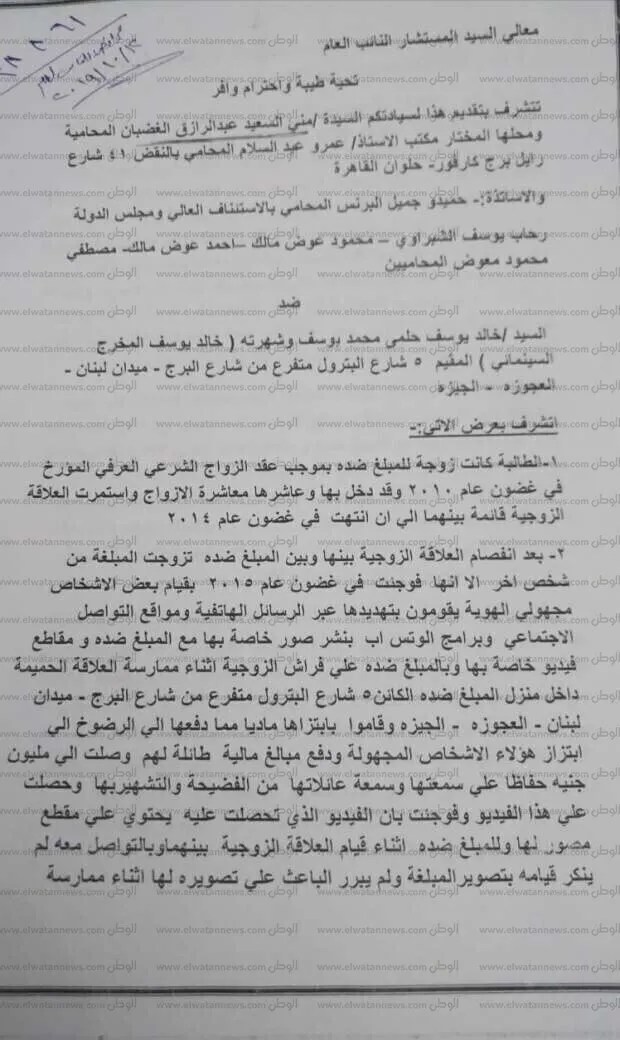 معالي السيد المستشار النائب العام
تحية طيبة واحترام وافر
تتشرف بتقديم هذا لسيادتكم السيدة /مني السعيد عبدالرازق الغضبان المحامية
ومحلها المختار مكتب الاستاذ/ عمرو عبد السلام المحامي بالنقض ٤١ شارع
رايل برج كارفور- حلوان القاهرة
والاساتذة:- حميدو جميل البرنس المحامي بالاستئناف العالي ومجلس الدولة
رحاب يوسف الشبراوي – محمود عوض مالك –احمد عوض مالك- مصطفي
محمود معوض المحاميين
ضد
السيد /خالد يوسف حلمي محمد يوسف وشهرته ( خالد يوسف المخرج
السينمائي ) المقيم ٥ شارع البترول متفرع من شارع البرج - ميدان لبنان -
العجوزه - الجيزه
اتشرف بعرض الاتي:-
١-الطالبة كانت زوجة للمبلغ ضده بموجب عقد الزواج الشرعي العرفي المؤرخ
في غضون عام ٢٠١٠ وقد دخل بها وعاشرها معاشرة الازواج واستمرت العلاقة
الزوجية قائمة بينهما الي ان انتهت في غضون عام ٢٠١٤
٢- بعد انفصام العلاقة الزوجية بينها وبين المبلغ ضده تزوجت المبلغة من
شخص اخر الا انها فوجئت في غضون عام ٢٠١٥ بقيام بعض الاشخاص
مجهولي الهوية يقومون بتهديدها عبر الرسائل الهاتفية ومواقع التواصل
الاجتماعي وبرامج الوتس اب بنشر صور خاصة بها مع المبلغ ضده و مقاطع
فيديو خاصة بها وبالمبلغ ضده علي فراش الزوجية اثناء ممارسة العلاقة الحميمة
داخل منزل المبلغ ضده الكائن٥ شارع البترول متفرع من شارع البرج - ميدان
لبنان - العجوزه - الجيزه وقاموا بابتزاها ماديا مما دفعها الي الرضوخ الي
ابتزاز هؤلاء الاشخاص المجهولة ودفع مبالغ مالية طائلة لهم وصلت الي مليون
جنيه حفاظا علي سمعتها وسمعة عائلاتها من الفضيحة والتشهيربها وحصلت
علي هذا الفيديو وفوجئت بان الفيديو الذي تحصلت عليه يحتوي علي مقطع
مصور لها وللمبلغ ضده اثناء قيام العلاقة الزوجية بينهماوبالتواصل معه لم
ينكر قيامه بتصويرالمبلغة ولم يبرر الباعث علي تصويره لها اثناء ممارسة
الوطن www.elwatannews.com